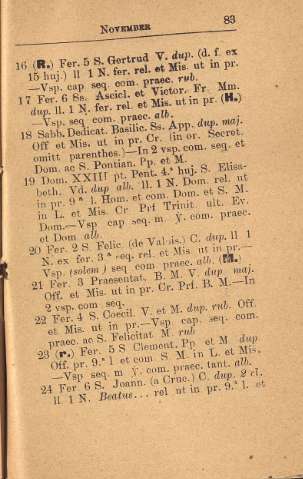 NOVEMBER 83
16 (R.) Fer. 5 S. Gertrud V. dup. (d. f. ex
15 huj.) ll 1 N. fer. rel. et Mis. ut in pr.
—Vsp. cap seq. com. praec. rub.
17 Fer. 6 Ss. Ascicl. et Victor. Fr. Mm.
dup. ll. 1 N. fer. rel. et Mis. ut in pr. (H.)
—Vsp. seq com. praec. alb.
18 Sabb. Dedicat. Basilic. Ss. App. dup. maj.
Off et Mis. ut in pr. Cr. (in or. Secret.
omitt parenthes.)—In 2 vsp. com. seq. et
Dom. ac S. Pontian. Pp. et M.
19 Dom. XXIII pt. Pent. 4.ª huj. S. Elisa-
beth. Vd. dup alb. ll. 1 N. Dom. rel. ut
in pr. 9 ª l. Hom. et com. Dom. et S. M.
in L. et Mis. Cr Prf Trinit. ult. Ev.
Dom.—Vsp cap seq. m V. com. praec.
et Dom alb.
20 Fer. 2 S. Felic. (de Valois.) C. dup. ll 1
N. ex fer. 3 ª seq. rel. et Mis. ut in pr.—
Vsp. (solem ) seq com praec. alb. (M.)
21 Fer. 3 Praesentat. B. M. V. dup maj.
Off. et Mis. ut in pr. Cr. Prf. B. M.—In
2 vsp. com seq.
22 Fer. 4 S. Coecil V. et M. dup. rub. Off.
et Mis. ut in pr.—Vsp. cap. seq. com.
praec. ac S. Felicitat M. rub
23 (r.) Fer. 5 S Clement. Pp et M dup
Off. pr. 9.ª l et com S M. in L. et Mis.
—Vsp. seq. m V. com. praec. tant. alb.
24 Fer 6 S. Joann. (a Cruc.) C. dup. 2 cl.
ll. 1 N. Beatus... rel ut in pr. 9.ª l. et